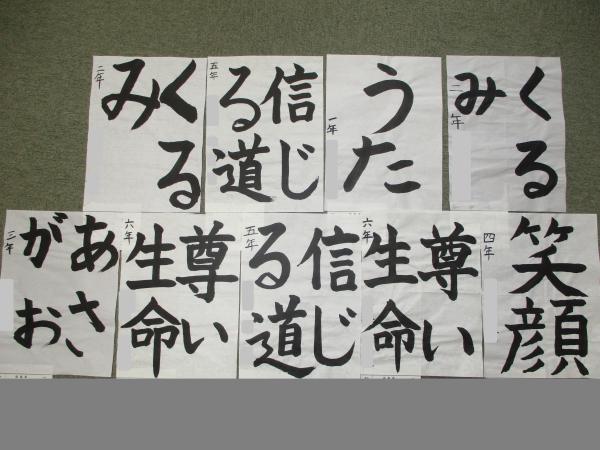 くる
み
二年
信じ
る道
五年
うた
一年
くる
み
二年
あさ
がお
三年
尊い
生命
六年
信じ
る道
五年
尊い
生命
六年
笑顔
四年